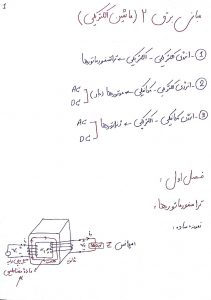 1
مبانی برق ۲ (ماشین الکتریکی)
① - انرژی الکتریکی - الکتریکی ← ترانسفورماتورها
② - انرژی الکتریکی - مکانیکی ← موتورها
AC
DC
③ - انرژی مکانیکی - الکتریکی ← ژنراتورها
AC
DC
فصل اول:
ترانسفورماتورها:
نمونه ساده:
امپدانس Z
هسته